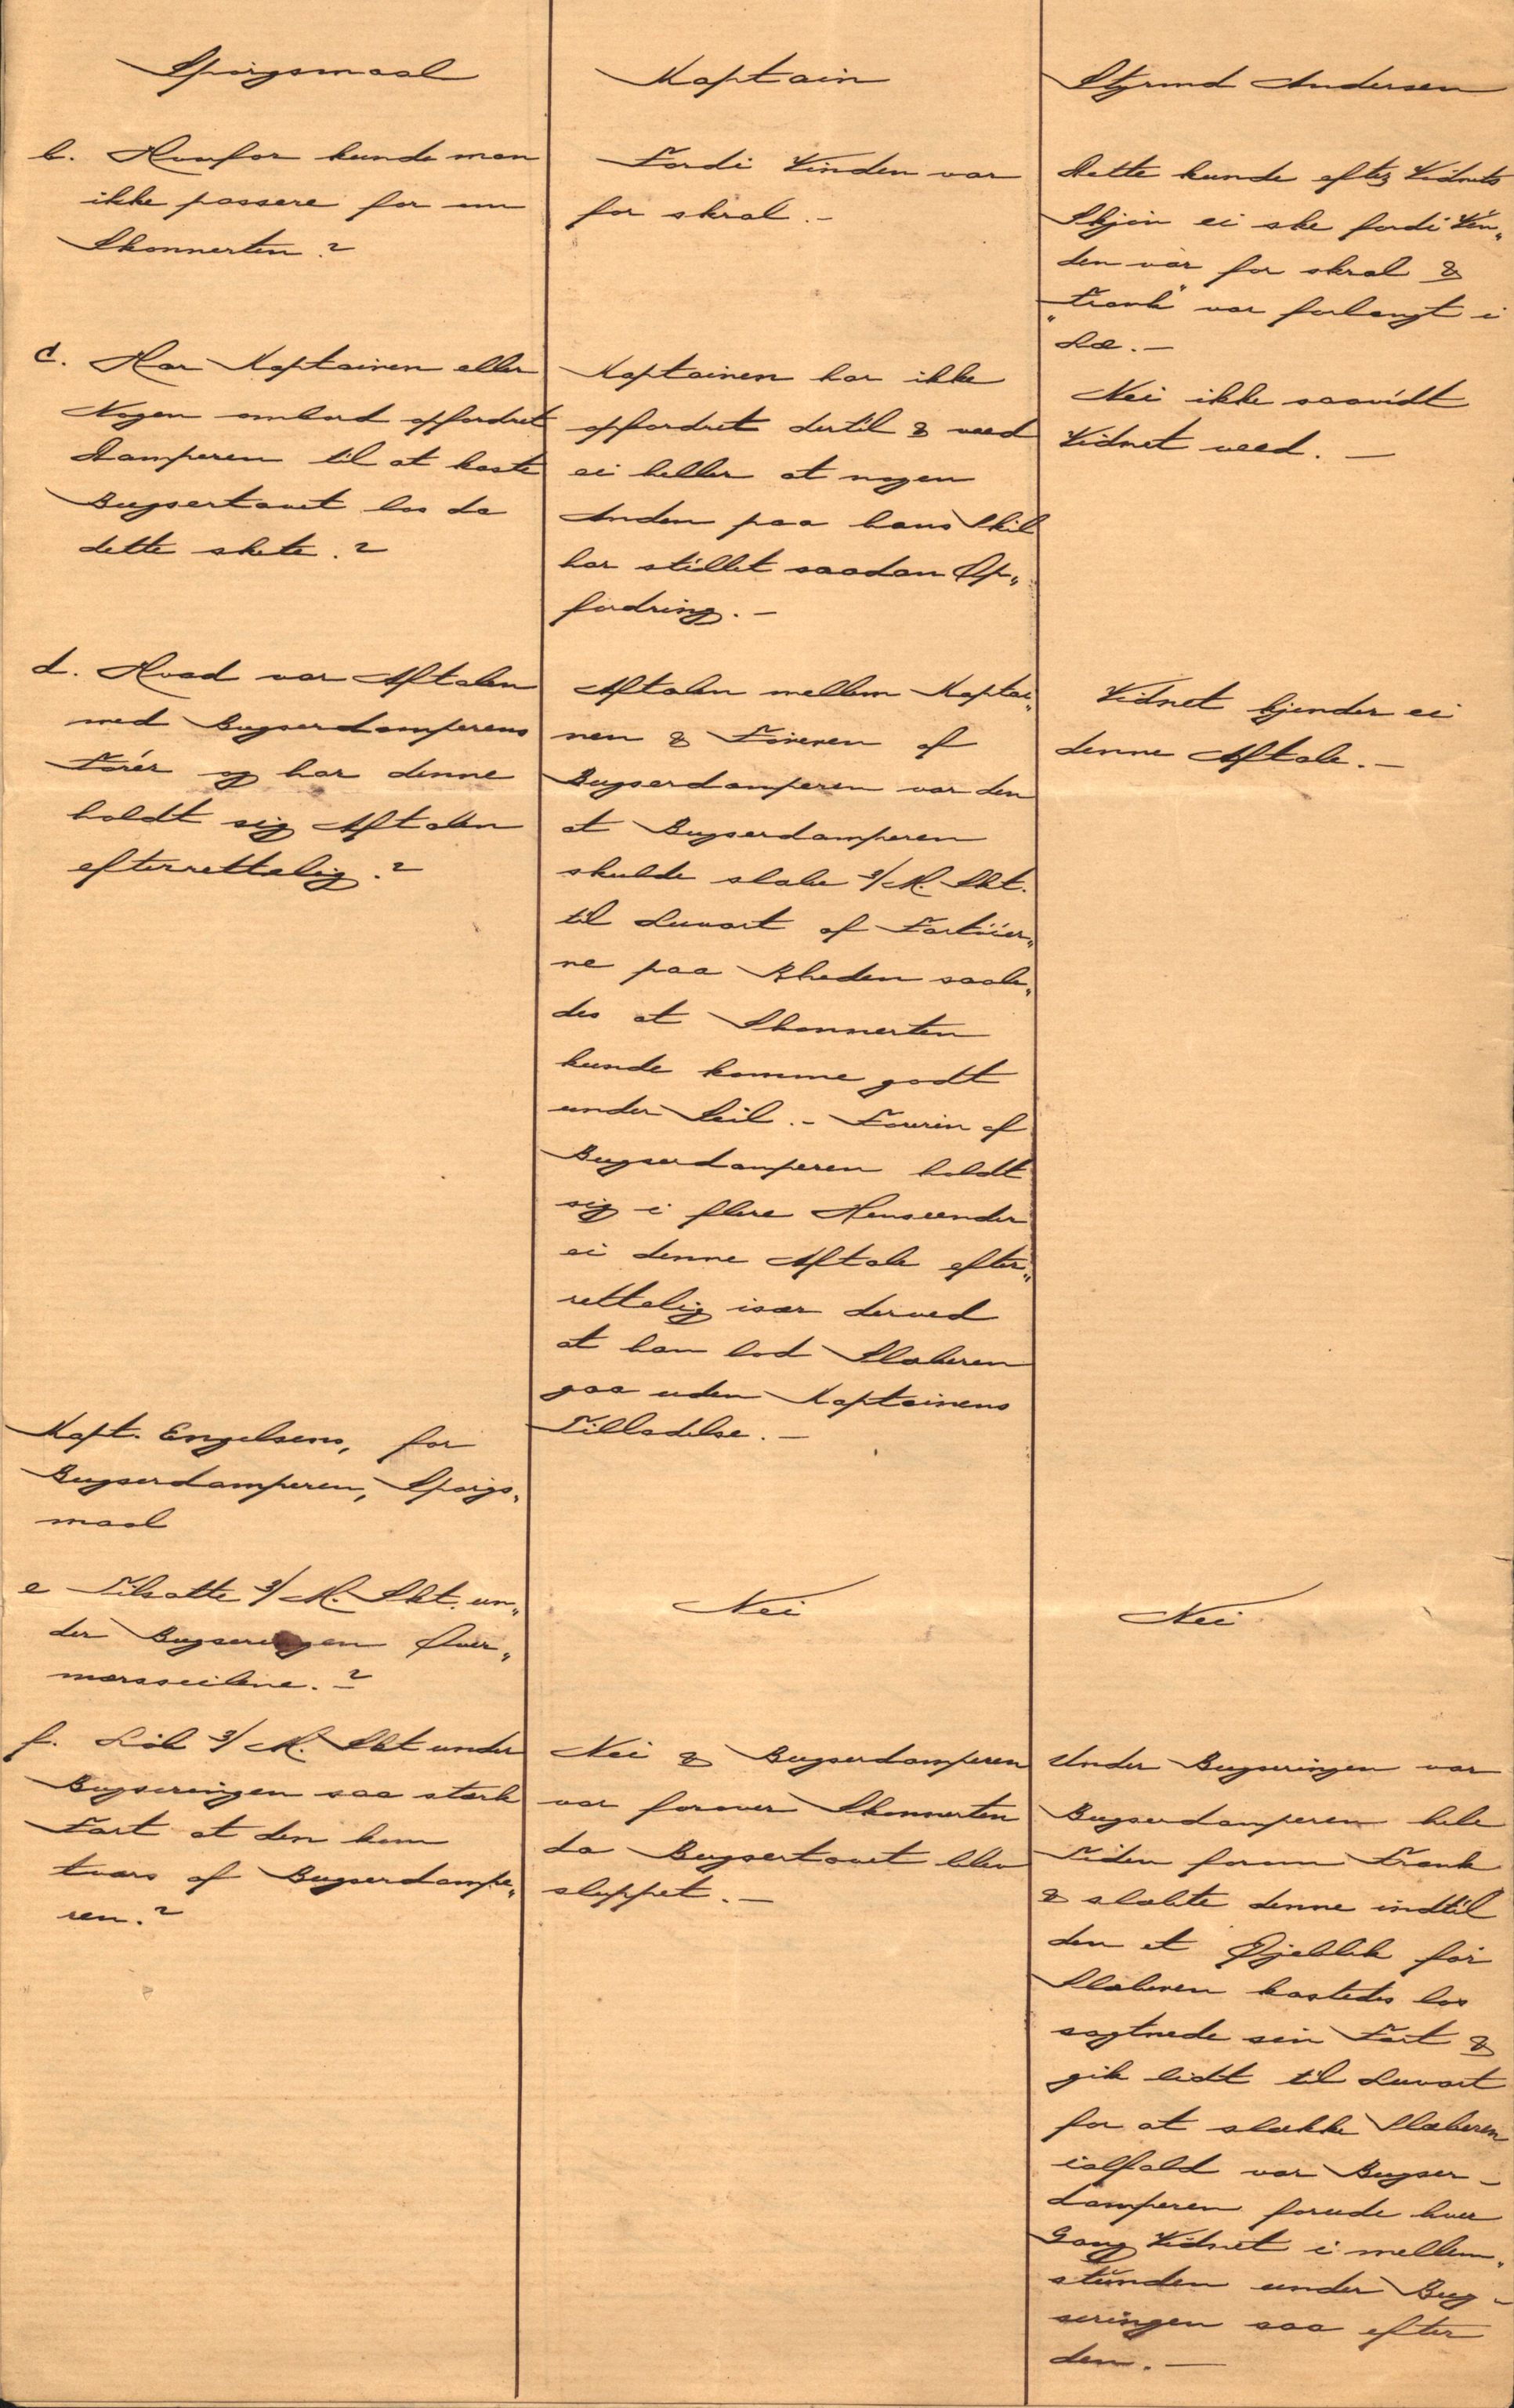 Spörgsmaal
b. Hvorfor kunde man
ikke passere for om
Skonnerten?
c. Har Kaptainen eller
Nogen ombord opfordret
Damperen til at kaste
Bugsertauet los da
dette skete.?
d. Hvad var Aftalen
med Bugserdamperens
Förer og har denne
holdt sig Aftalen
efterrettelig.?
Kapt. Engelsens, for
Bugserdamperen, Spörgs„
maal
e Tilsatte 3/M. Skt. un„
der Bugseringen Over„
mersseilene.?
f. Löb 3/M. Skt under
Bugseringen saa stærk
Fart at den kom
tværs af Bugserdampe„
ren.?
Kaptain
Fordi Vinden var
for skral.-
Kaptainen har ikke
opfordret dertil & veed
ei heller at nogen
Anden paa hans Skib
har stillet saadan Op„
fordring.-
Aftalen mellem Kaptai„
nen & Föreren af
Bugserdamperen var den
at Bugserdamperen
skulde slæbe 3/M. Skt.
til Luvart af Fartöier„
ne paa Rheden saale„
des at Skonnerten
kunde komme godt
under Seil.- Föreren af
Bugserdamperen holdt
sig i flere Henseender
ei denne Aftale efter„
rettelig især derved
at han lod Slæberen
gaa uden Kaptainens
Tilladelse.-
Nei
Nei & Bugserdamperen
var forover Skonnerten
da Bugsertauet blev
sluppet.-
Styrmd Andersen
Dette kunde efter Vidnets
Skjön ei ske fordi Vin„
den var for skral &
„Frank" var forlangt i
Læ.-
Nei ikke saavidt
Vidnet veed.-
Vidnet kjender ei
denne Aftale.-
Nei
Under Bugseringen var
Bugserdamperen hele
Tiden forom Frank
& slæbte denne indtil
den et Øjeblik för
Slæberen kastedes los
sagtnede sin Fart &
gik lidt til Luvart
for at slække Slæberen
ialfald var Bugser-
damperen forude hver
Gang Vidnet i mellem„
stunden under Bug-
seringen saa efter
den.-